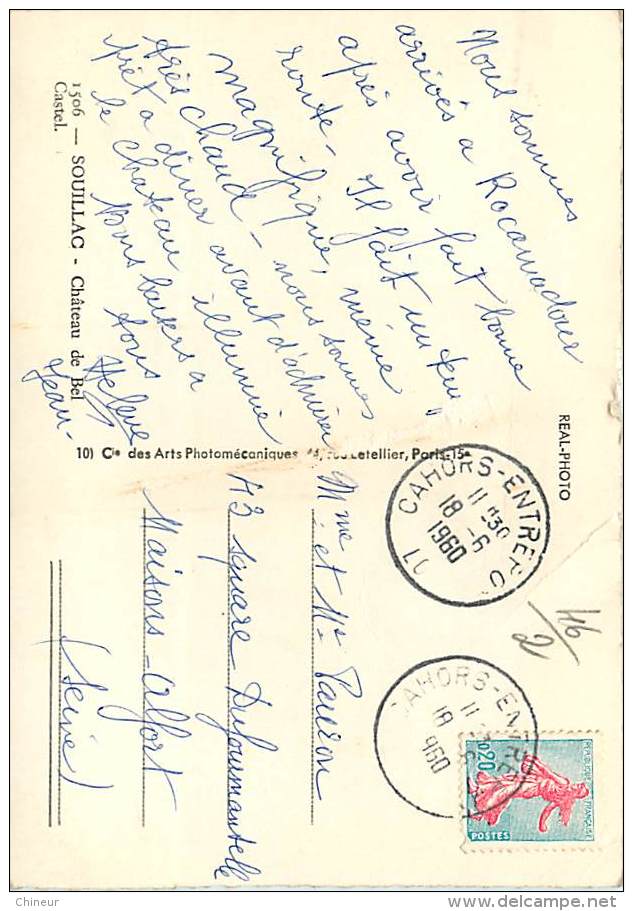 Nous sommes
arrivés à Rocamadour
après avoir fait bonne
route - Il fait un temps
magnifique, même
très chaud - nous sommes
prêt a dîner avant d'admirer
le chateau illuminé
Bons baisers a
tous
Helene
Jean-
1506 — SOUILLAC - Château de Bel
Castel.
10) Cie des Arts Photomécaniques 44, rue Letellier, Paris-15e
REAL-PHOTO
Mme et Mr Pauron
43 square Dufourmantelle
Maisons-Alfort
(Seine)
CAHORS-ENTREPOT
11 H30
18 -6
1960
46/2
CAHORS-ENTRE
11
18
960
0,20
REPUBLIQUE FRANÇAISE
POSTES
Chineur
delcampe.net